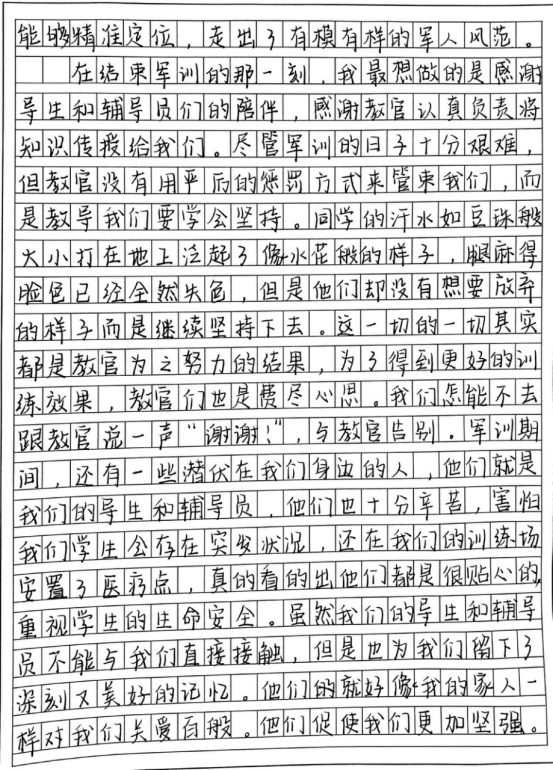 能够精准定位，走出了有模有样的军人风范。
在结束军训的那一刻，我最想做的是感谢
导生和辅导员们的陪伴，感谢教官认真负责将
知识传授给我们。尽管军训的日子十分艰难，
但教官没有用严厉的惩罚方式来管束我们，而
是教导我们要学会坚持。同学的汗水如豆珠般
大小打在地上泛起了像水花般的样子，腿麻得
脸色已经全然失色，但是他们却没有想要放弃
的样子而是继续坚持下去。这一切的一切其实
都是教官为之努力的结果，为了得到更好的训
练效果，教官们也是费尽心思。我们怎能不去
跟教官说一声“谢谢！”，与教官告别。军训期
间，还有一些潜伏在我们身边的人，他们就是
我们的导生和辅导员，他们也十分辛苦，害怕
我们学生会存在突发状况，还在我们的训练场
安置了医疗点，真的看的出他们都是很贴心的，
重视学生的生命安全。虽然我们的导生和辅导
员不能与我们直接接触，但是也为我们留下了
深刻又美好的记忆。他们的就好像我的家人一
样对我们关爱百般。他们促使我们更加坚强。